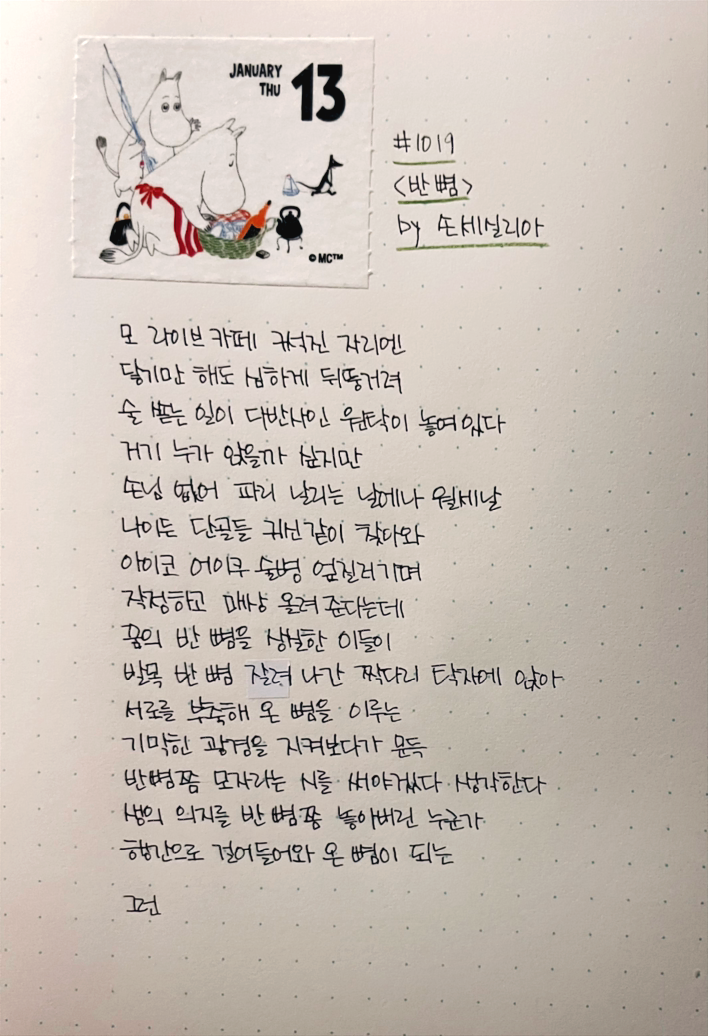 JANUARY
THU
13
©MC™
#1019
<반 뼘>
by 손세실리아
모 라이브 카페 구석진 자리엔
닿기만 해도 심하게 뒤뚱거려
술 쏟는 일이 다반사인 원탁이 놓여있다
거기 누가 앉을까 싶지만
손님 없어 파리 날리는 날에나 월세날
나이든 단골들 귀신같이 찾아와
아이코 어이쿠 술병 엎질러가며
작정하고 매상 올려 준다는데
꿈의 반 뼘을 상실한 이들이
발목 반 뼘 잘려 나간 짝다리 탁자에 앉아
서로를 부축해 온 뼘을 이루는
기막힌 광경을 지켜보다가 문득
반뼘쯤 모자라는 시를 써야겠다 생각한다
생의 의지를 반 뼘쯤 놓아버린 누군가
행간으로 걸어들어와 온 뼘이 되는
그런